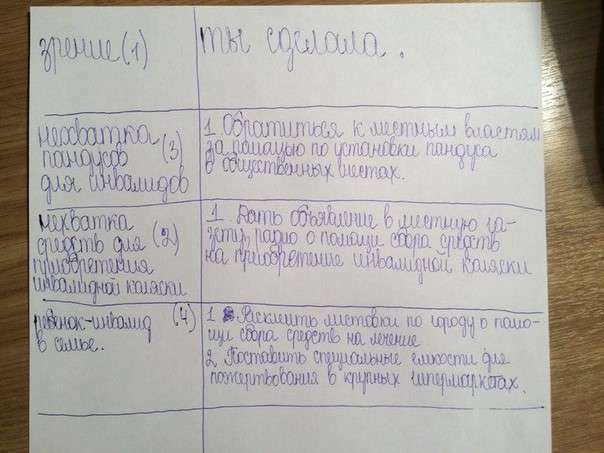 зрение (1)
ты сделала.
нехватка
пандусов (3)
для инвалидов
1. Обратиться к местным властям
за помощью по установки пандуса
в общественных местах.
нехватка
средств для (2)
приобретения
инвалидной коляски
1. Дать объявление в местную га-
зету, радио о помощи сбора средств
на приобретение инвалидной коляски
ребёнок-инвалид (4)
в семье.
1 Расклеить листовки по городу о помо-
щи сбора средств на лечение
2 Поставить специальные емкости для
пожертвования в крупных гипермаркетах.